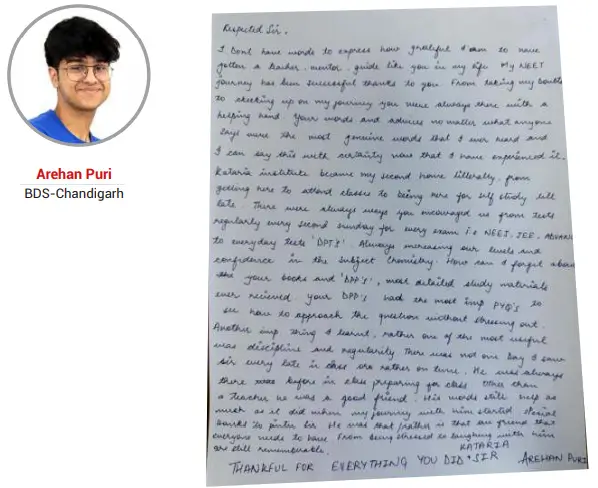 Arehan Puri
BDS-Chandigarh
Respected Sir,
I Dont have words to express how grateful I am to have
gotten a teacher, mentor, guide like you in my life My NEET
journey has been successful thanks to you. From taking my doubts
to checking up on my journey you were always there with a
helping hand. Your words and advices no matter what anyone
says were the most genuine words that I ever heard and
I can say this with certainty now that I have experienced it.
Kataria institute became my second home litterally, from
getting here to attend classes to being here for self study till
late. There were always ways you encouraged us from tests
regularly every second sunday for every exam i.e NEET, JEE, ADVANC
to everyday tests 'DPT's'. Always increasing our levels and
confidence in the subject Chemistry. How can I forget about
the your books and 'DPP's', most detailed study materials
ever recieved your DPP's had the most imp PYQ's to
see how to approach the question without stressing out.
Another imp thing I learnt, rather one of the most useful
was discipline and regularity there was not one Day I saw
sir every late in class rather on time. He was always
there before in class preparing for class Other than
a teacher he was a good friend. His words still help as
much as it did when my journey with him started. Special
thanks to sir He was that /rather is that one friend that
everyone needs to have From being stressed to laughing with him
are still rememberable.
THANKFUL FOR EVERYTHING YOU DID KATARIA SIR
AREHAN PURI